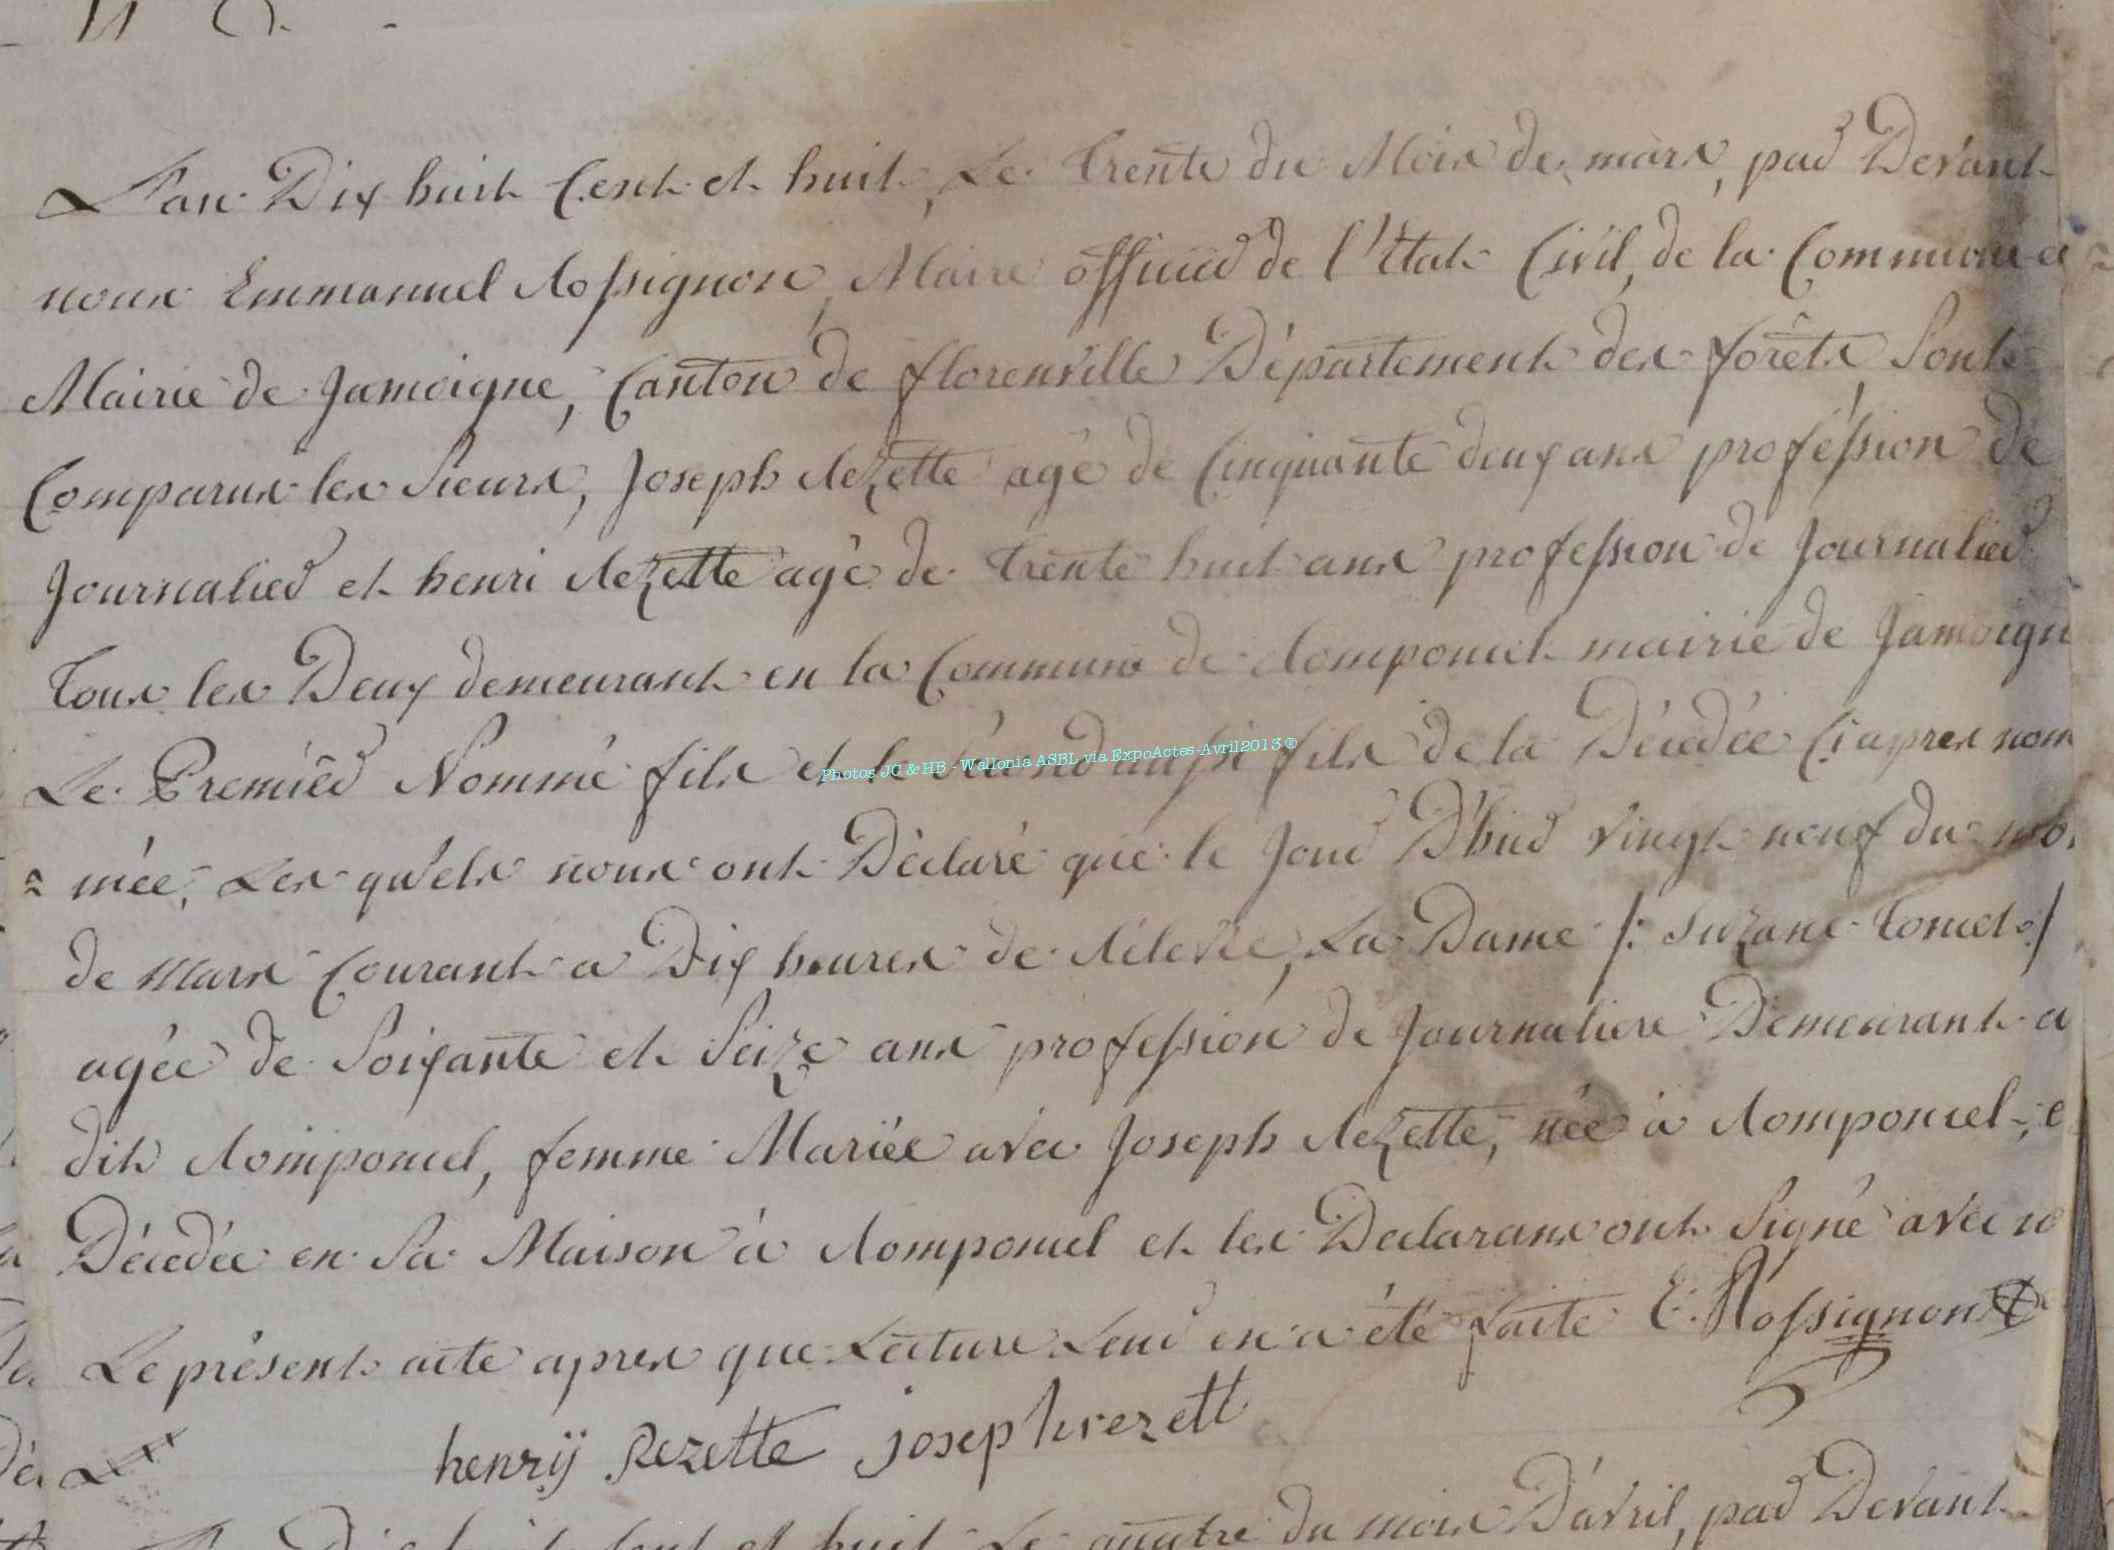 L'an Dix huit Cent et huit, Le trente du Mois de mars, par Devant
nous Emmanuel Rossignon, Maire officier de l'Etat Civil, de la Commune et
Mairie de Jamoigne, Canton de florenville Département des forêts, Sont
Comparus les Sieurs, Joseph Rezette agé de Cinquante deux ans proféssion de
Journalier et henri Rezette agé de trente huit ans profession de Journalier
Tous les Deux demeurant en la Commune de Romponcel mairie de Jamoign
Le Premiér Nommé fils et le sécond aussi fils de la Décédée Ci apres nom
= mée, Les qu'els nous ont Déclaré que le Jour D'hier Vingt neuf du mo
de Mars Courant a Dix heures de Rélevée, La Dame /: Suzane Toniet :/
agée de Soixante et Seize ans profession de Journaliere Demeurant a
dit Romponcel, femme Mariée avec Joseph Rezette, née à Romponcel, e
Décédée en Sa Maison à Romponcel et les Declarans ont Signé avec n
Le présent acte apres que Lecture Leur en a été faite E. Rossignon
henrÿ Rezette joseph rezett
huit Cent et huit Le quatre du mois D'avril, par Devant
Photos JC & HB - Wallonia ASBL via ExpoActes-Avril2013 ©